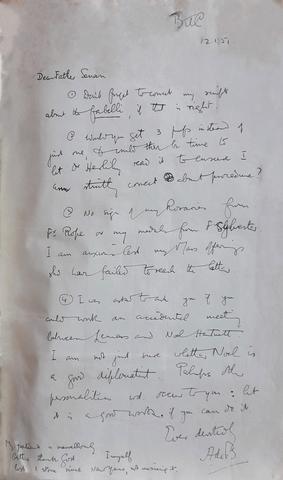 BAC
12.1.51
Dear Father Senan
① Don't forget to correct my script
about the fabelli, if it is right.
② Would you get 3 pfs instead of
just one, & would there be time to
let Dr Hashily read it to ensure I
am strictly correct about procedure?
③ No sign of my Rosaries from
Fr Rope or my medals from F Sylvester
I am anxious lest my Mass offerings
shd have failed to reach the latter
④ I was to ask you if you
could work an accidental meeting
between Lemass and Noel Hartnett
I am not just sure whether Noel is
a good diplomatist Perhaps other
personalities wd occur to you: but
it is a good work, if you can do it
Ever devotedly
AdeB
My patient is marvellously
better thank God I myself
since New Year's, not missing it.